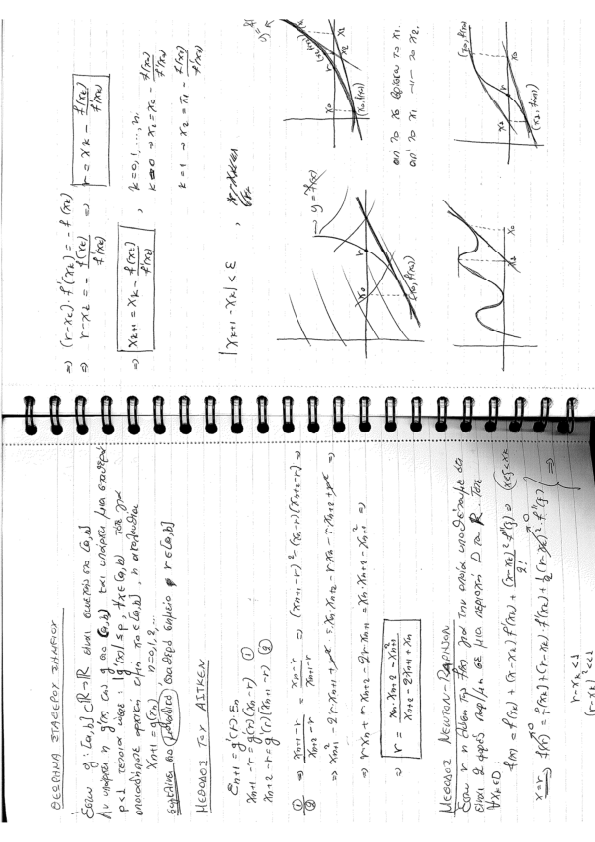 ΘΕΩΡΗΜΑ ΣΤΑΘΕΡΟΥ ΣΗΜΕΙΟΥ
Έστω g: [a,b] ⊂ ℝ → ℝ είναι συνεχή στο [a,b]
Αν υπάρχει η g'(x) της g στο (a,b) και υπάρχει μια σταθερά
p<1 τέτοια ώστε: |g'(x)| ≤ p, ∀x ∈ (a,b) τότε για
οποιαδήποτε αρχική τιμή x0 ∈ [a,b], η ακολουθία
xn+1 = g(xn) n=0,1,2,...
συγκλίνει στο μοναδικό σταθερό σημείο r ∈ [a,b]
ΜΕΘΟΔΟΣ ΤΟΥ AITKEN
εn+1 = g'(r)·εn
xn+1 - r = g'(r)(xn - r) ①
xn+2 - r = g'(r)(xn+1 - r) ②
①/② ⇒ (xn+1 - r)/(xn+2 - r) = (xn - r)/(xn+1 - r) ⇒ (xn+1 - r)² = (xn - r)(xn+2 - r) ⇒
⇒ x²n+1 - 2r xn+1 + r² = xn xn+2 - r xn - r xn+2 + r² ⇒
⇒ r xn + r xn+2 - 2r xn+1 = xn xn+2 - xn+1² ⇒
⇒ r = (xn·xn+2 - x²n+1)/(xn+2 - 2xn+1 + xn)
ΜΕΘΟΔΟΣ NEWTON-RAPHSON
Έστω r η λύση της f(x) για την οποία υποθέτουμε ότι
είναι 2 φορές παρ/μη σε μια περιοχή D του ℝ. Τότε
∀xk ∈ D
f(x) = f(xk) + (x-xk) f'(xk) + (x-xk)²/2! · f''(ξ)
x=r ⇒ f(r) = f(xk) + (r-xk) f'(xk) + ½ (r-xk)² f''(ξ) ⇒
r-xk < 1
(r-xk)² << 1
⇒ (r-xk)·f'(xk) = -f(xk)
⇒ r-xk = - f(xk)/f'(xk) ⇒ r = xk - f(xk)/f'(xk)
⇒ xk+1 = xk - f(xk)/f'(xk) , k=0,1,...,n.
k=0 → x1 = x0 - f(x0)/f'(x0)
k=1 → x2 = x1 - f(x1)/f'(x1)
|xk+1 - xk| < ε ,
y=f(x)
x0
r
(x0,f(x0))
x0
r
x2
x1
(x0,f(x0))
(x1,f(x1))
απ' το x0 βρίσκω το x1.
απ' το x1 -//- το x2
x0
x1
x0
r
x1
(x0,f(x0))
(x1,f(x1))